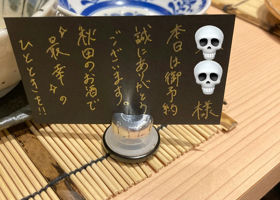 様
本日は御予約
誠にありがとう
ございます。
秋田のお酒で
"最幸"の
ひとときを!!